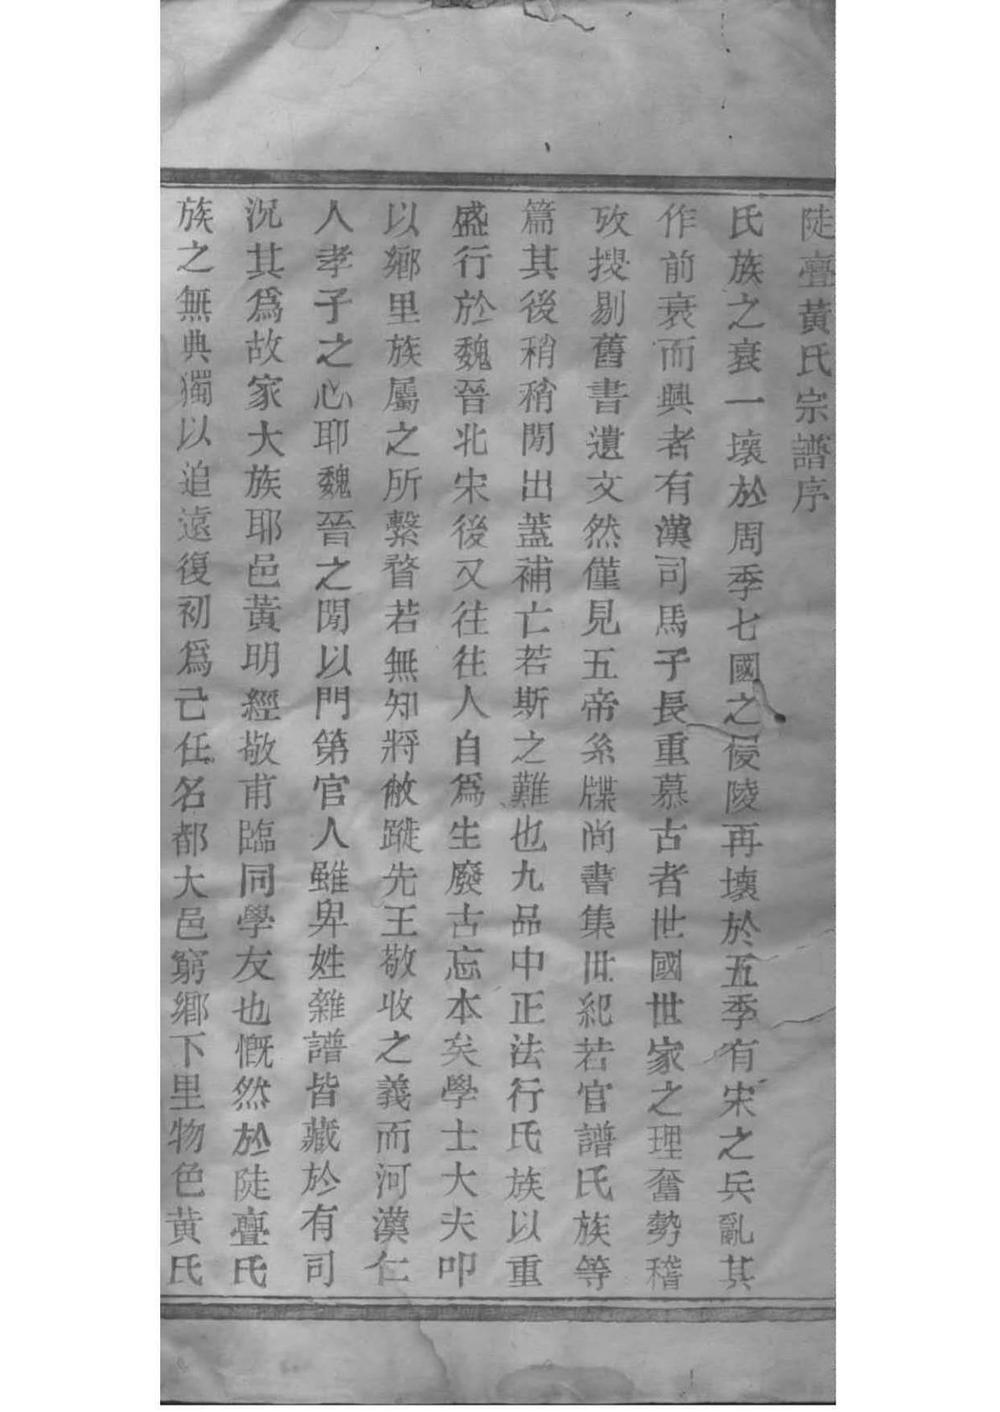 陡亹黃氏宗譜序
氏族之衰一壞於周季七國之侵陵再壞於五季有宋之兵亂其
作前衰而興者有漢司馬子長重慕古者世國世家之理奮勢稽
攷搜剔舊書遺文然僅見五帝系牒尚書集世紀若官譜氏族等
篇其後稍稍閒出蓋補亡若斯之難也九品中正法行氏族以重
盛行於魏晉北宋後又往往人自爲生廢古忘本矣學士大夫叩
以鄉里族屬之所繫瞀若無知將敝蹝先王敬收之義而河漢仁
人孝子之心耶魏晉之閒以門第官人雖卑姓雜譜皆藏於有司
況其爲故家大族耶邑黃明經敬甫臨同學友也慨然於陡亹氏
族之無典獨以追遠復初爲己任名都大邑窮鄉下里物色黃氏